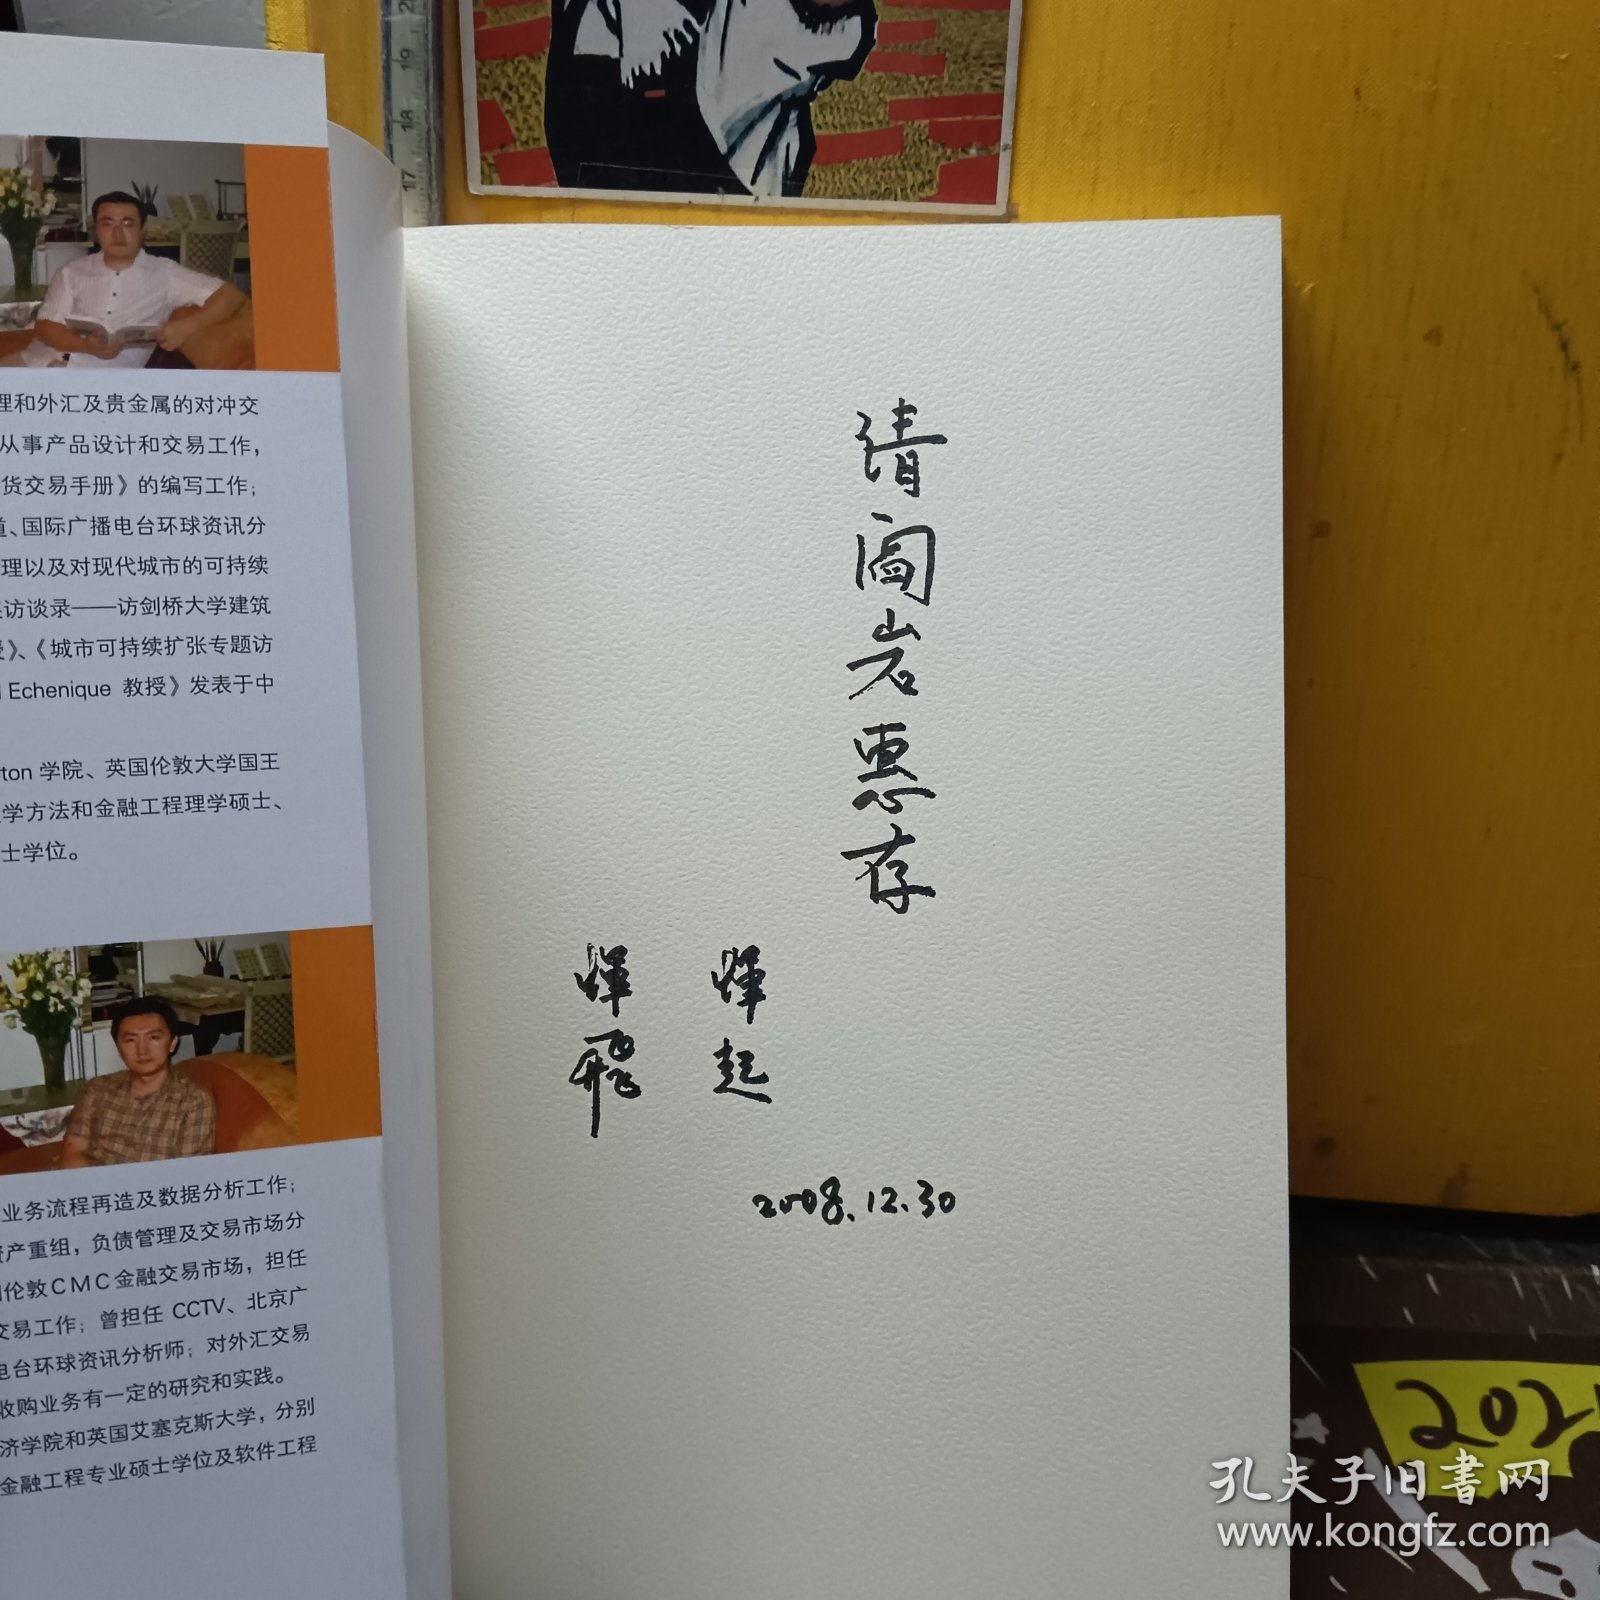 理和外汇及贵金属的对冲交
从事产品设计和交易工作，
货交易手册》的编写工作；
道、国际广播电台环球资讯分
理以及对现代城市的可持续
访谈录——访剑桥大学建筑
》、《城市可持续扩张专题访
Echenique 教授》发表于中
rton 学院、英国伦敦大学国王
学方法和金融工程理学硕士、
士学位。
业务流程再造及数据分析工作；
资产重组，负债管理及交易市场分
伦敦CMC金融交易市场，担任
交易工作；曾担任 CCTV、北京广
电台环球资讯分析师；对外汇交易
收购业务有一定的研究和实践。
济学院和英国艾塞克斯大学，分别
金融工程专业硕士学位及软件工程
请阎岩惠存
辉起
辉飛
2008.12.30
17
18
19
孔夫子旧书网
www.kongfz.com